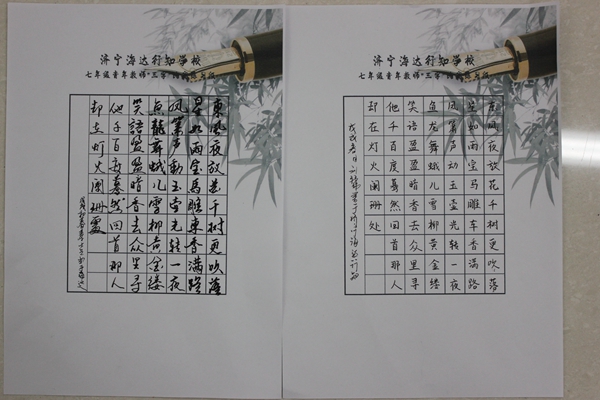 济宁海达行知学校
七年级青年教师"三字"
東風夜放花千樹更吹落
星如雨宝馬雕車香满路
凤箫声動玉壶光转一夜
魚龍舞蛾儿雪柳黄金缕
笑語盈盈暗香去众里寻
他千百度蓦然回首那人
却在灯火阑珊處
济宁海达行知学校
七年级青年教师"三字"
东风夜放花千树更吹落
星如雨宝马雕车香满路
凤箫声动玉壶光转一夜
鱼龙舞蛾儿雪柳黄金缕
笑语盈盈暗香去众里寻
他千百度蓦然回首那人
却在灯火阑珊处
戊戌春日